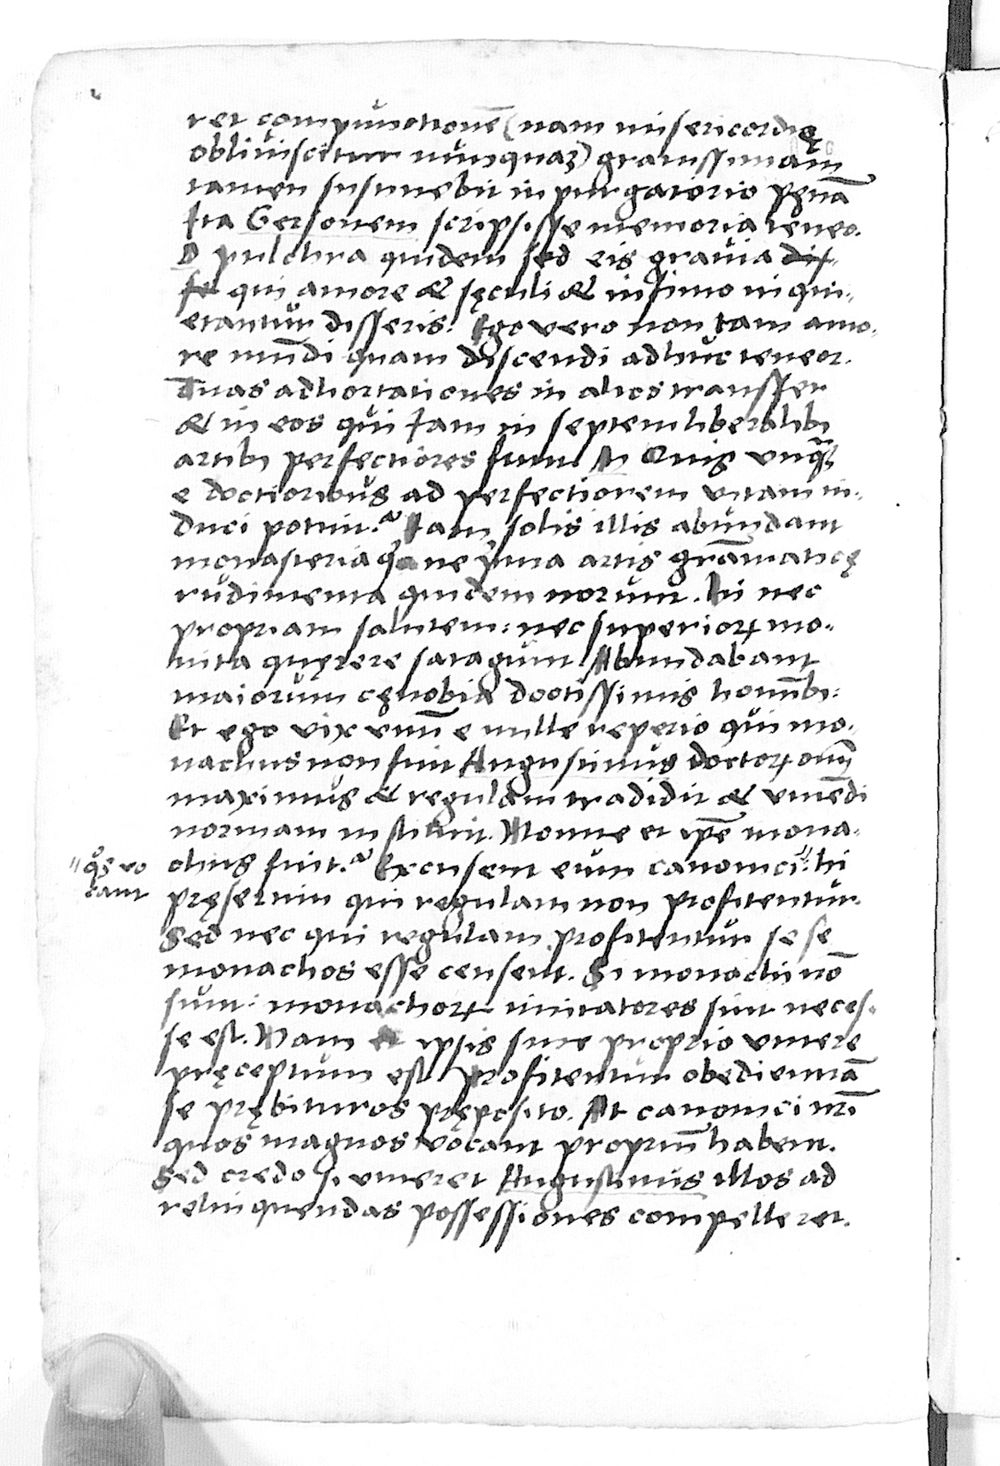 ret compunctionē (nam misericordię
obliuiscitur nunquaȝ) grauissimam
tamen sustinebit in purgatorio pęnā
Ita Gersonem scripsisse memoria teneo.
D pulchra quidem sed eis grauia
qui amore & sęculi & infimo inqui-
etantur disseris. Ego vero non tam amo-
re mūdi quam discendi adhuc teneor.
Tuas adhortationes in alios transfer
& in eos qui iam in septem liberalibꝫ
artibꝫ perfectiores sunt Quis vnq̄
e doctioribus ad perfectiorem vitam in-
duci potuit? Nam solis illis abundant
monasteria q ne prima artis grāmaticę
rudimenta quidem norunt. Hi nec
propriam salutem: nec superiorꝝ mo-
nita quęrere satagunt Abundabant
maiorum cęnobia doctissimis hominibꝫ:
Et ego vix vnū e mille reperio qui mo-
nachus non fuit Augustinus doctorꝝ oīm
maximus & regulam tradidit & viuēdi
normam instituit. Nonne et ipē mona-
chus fuit? Excusent eum canonici": hi
"q̊s vo
cant
pręsertim qui regulam non profitentur.
Sed nec qui regulam profitentur se se
monachos esse censent. Si monachi nō
sunt: monachorꝝ imitatores sint neces-
se est. Nam et ipsis sine proprio viuere
pręceptum est Profitentur obedientiā
se prębituros pręposito. At canonici nr̄i
quos magnos vocant propriū habent.
Sed credo si viueret Augustinus illos ad
relinquendas possessiones compelleret.